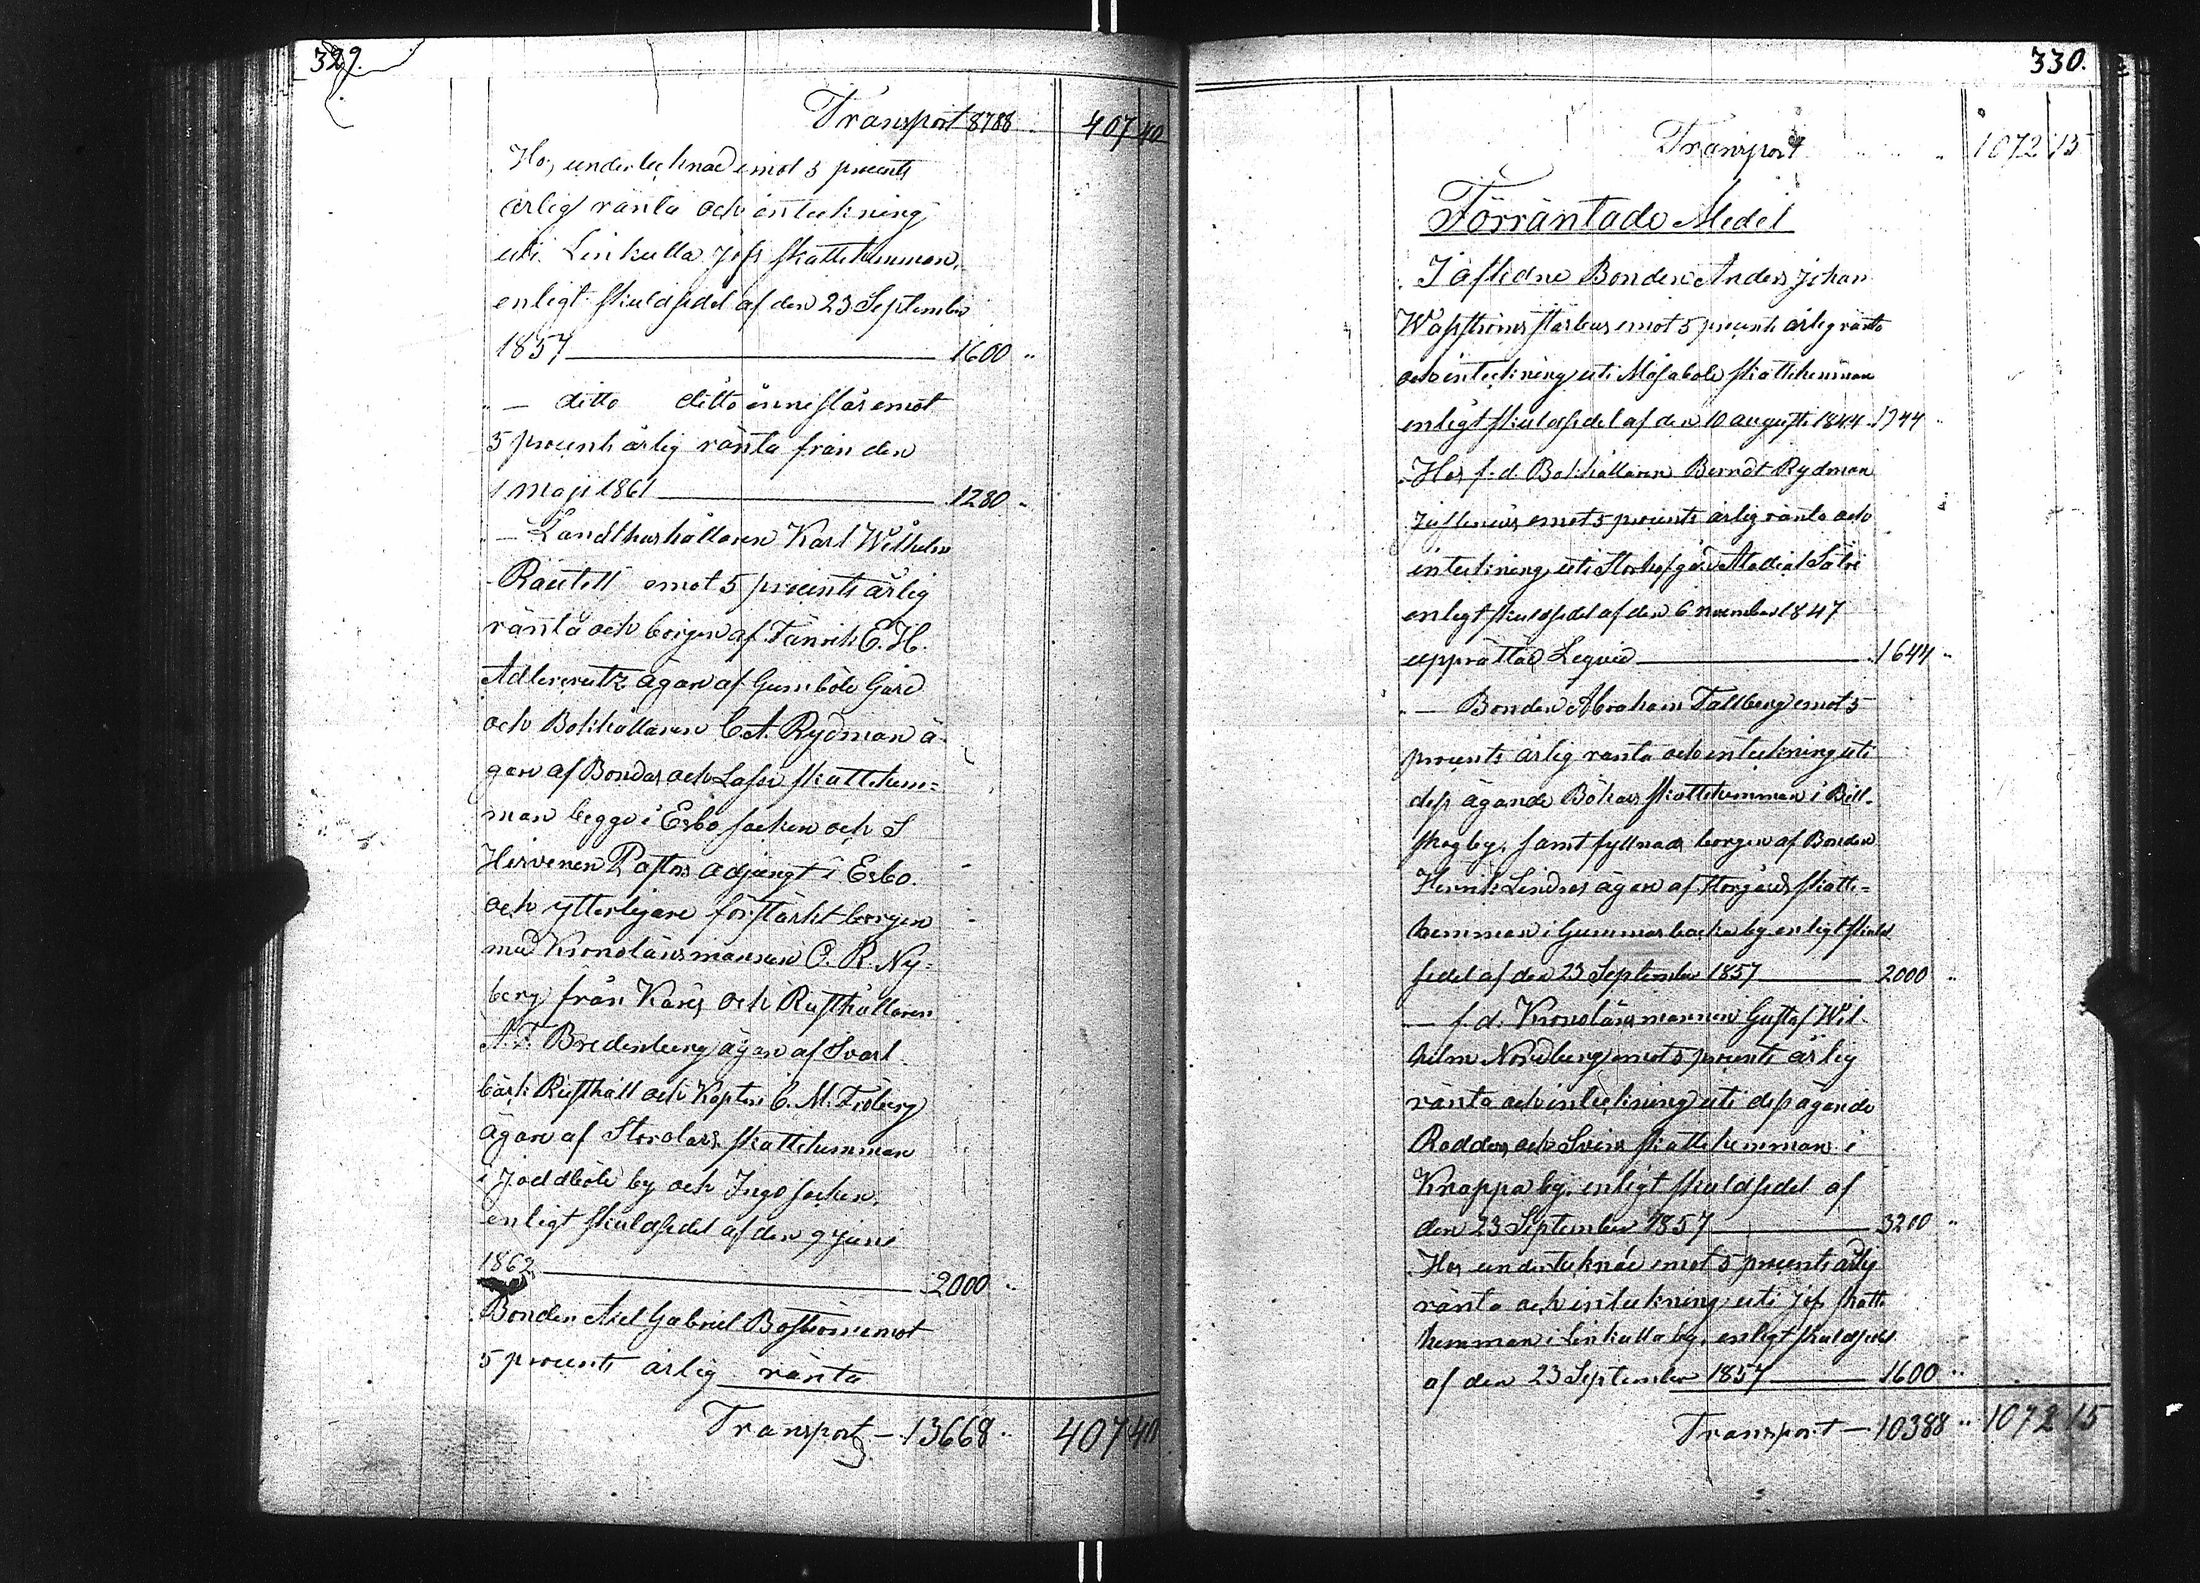 329.
Transport 8788 407 40
Hos undertecknad emot 5 procents
årlig ränta och inteckning
uti Linkulla Jofs skattehemman,
enligt skuldsedel af den 23 September
1857 — 1600 "
" — ditto ditto inneslår emot
5 procents årlig ränta från den
1 Maji 1861 — 1280 "
" — Landthushållaren Karl Wilhelm
Rautell emot 5 procents årlig
ränta och borgen af Fänrik E. H.
Adlercreutz ägare af Gumböle Gård
och Bokhållaren C. A. Rydman ä-
gare af Bondas och Lassas skattehem=
man begge i Esbo socken och S
Hirvenen Pastors adjungt i Esbo.
och ytterligare förstärkt borgen
med Kronolänsmannen O. R. Ny=
berg från Karis och Rusthållaren
A. F. Bredenberg ägare af Svart
bäck Rusthåll och Kapten C. M. Tedberg
ägare af Storolars skattehemman
i Joddböle by och Ingo socken,
enligt skuldsedel af den 9 Juni
1862 — 2000 "
Bonden Axel Gabriel Boström emot
5 procents årlig ränta
Transport — 13668 " 407 40
330.
Transport " 1072 15
Förräntade Medel
I aflidne Bonden Anders Johan
Wasströms stärbus emot 5 procents årlig ränta
och inteckning uti Masabole skattehemman
enligt skuldsedel af den 10 augusti 1844 1944 "
Hos f. d. Bokhållaren Berndt Rydman
emot 5 procents årlig ränta och
inteckning uti Storhofgård
enligt skuldsedel af den 6 november 1847
upprättad Leqvid — 1644 "
" — Bonden Abraham Fallberg emot 5
procents årlig ränta och inteckning uti
dess ägande Bökars skattehemman i Bill-
skog by, samt fyllnads borgen af Bonden
Henrik Lindros ägare af Storgårds skatte=
hemman i Gummarbacka by enligt skuld
sedel af den 23 September 1857 — 2000 "
— f. d. Kronolänsmannen Gustaf Wil-
helm Nordberg emot 5 procents årlig
ränta och inteckning uti dess ägande
Roddas och Svens skattehemman i
Knappa by, enligt skuldsedel af
den 23 September 1857 — 3200 "
Hos undertecknad emot 5 procents årlig
ränta och inteckning uti Jofs skatte
hemman i Linkulla by, enligt skuldsedel
af den 23 September 1857 — 1600 "
Transport — 10388 " 1072 15